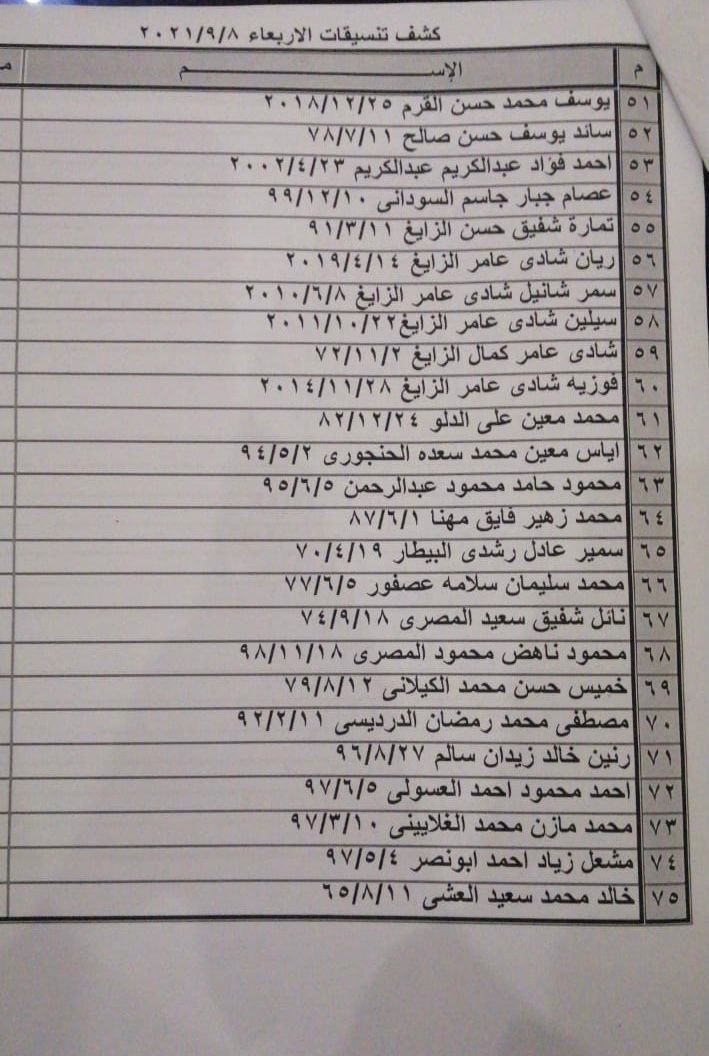 كشف تنسيقات الاربعاء ٢٠٢١/٩/٨
م الإســـــــــم
٥١ يوسف محمد حسن القرم ٢٠١٨/١٢/٢٥
٥٢ سائد يوسف حسن صالح ٧٨/٧/١١
٥٣ احمد فؤاد عبدالكريم عبدالكريم ٢٠٠٢/٤/٢٣
٥٤ عصام جبار جاسم السودانى ٩٩/١٢/١٠
٥٥ تمارة شفيق حسن الزايغ ٩١/٣/١١
٥٦ ريان شادى عامر الزايغ ٢٠١٩/٤/١٤
٥٧ سمر شانيل شادى عامر الزايغ ٢٠١٠/٦/٨
٥٨ سيلين شادى عامر الزايغ٢٠١١/١٠/٢٢
٥٩ شادى عامر كمال الزايغ ٧٢/١١/٢
٦٠ فوزيه شادى عامر الزايغ ٢٠١٤/١١/٢٨
٦١ محمد معين على الدلو ٨٢/١٢/٢٤
٦٢ اياس معين محمد سعده الحنجورى ٩٤/٥/٢
٦٣ محمود حامد محمود عبدالرحمن ٩٥/٦/٥
٦٤ محمد زهير فايق مهنا ٨٧/٦/١
٦٥ سمير عادل رشدى البيطار ٧٠/٤/١٩
٦٦ محمد سليمان سلامه عصفور ٧٧/٦/٥
٦٧ نائل شفيق سعيد المصرى ٧٤/٩/١٨
٦٨ محمود ناهض محمود المصرى ٩٨/١١/١٨
٦٩ خميس حسن محمد الكيلانى ٧٩/٨/١٢
٧٠ مصطفى محمد رمضان الدرديسى ٩٢/٢/١١
٧١ رنين خالد زيدان سالم ٩٦/٨/٢٧
٧٢ احمد محمود احمد العسولى ٩٧/٦/٥
٧٣ محمد مازن محمد الغلايينى ٩٧/٣/١٠
٧٤ مشعل زياد احمد ابونصر ٩٧/٥/٤
٧٥ خالد محمد سعيد العشى ٦٥/٨/١١